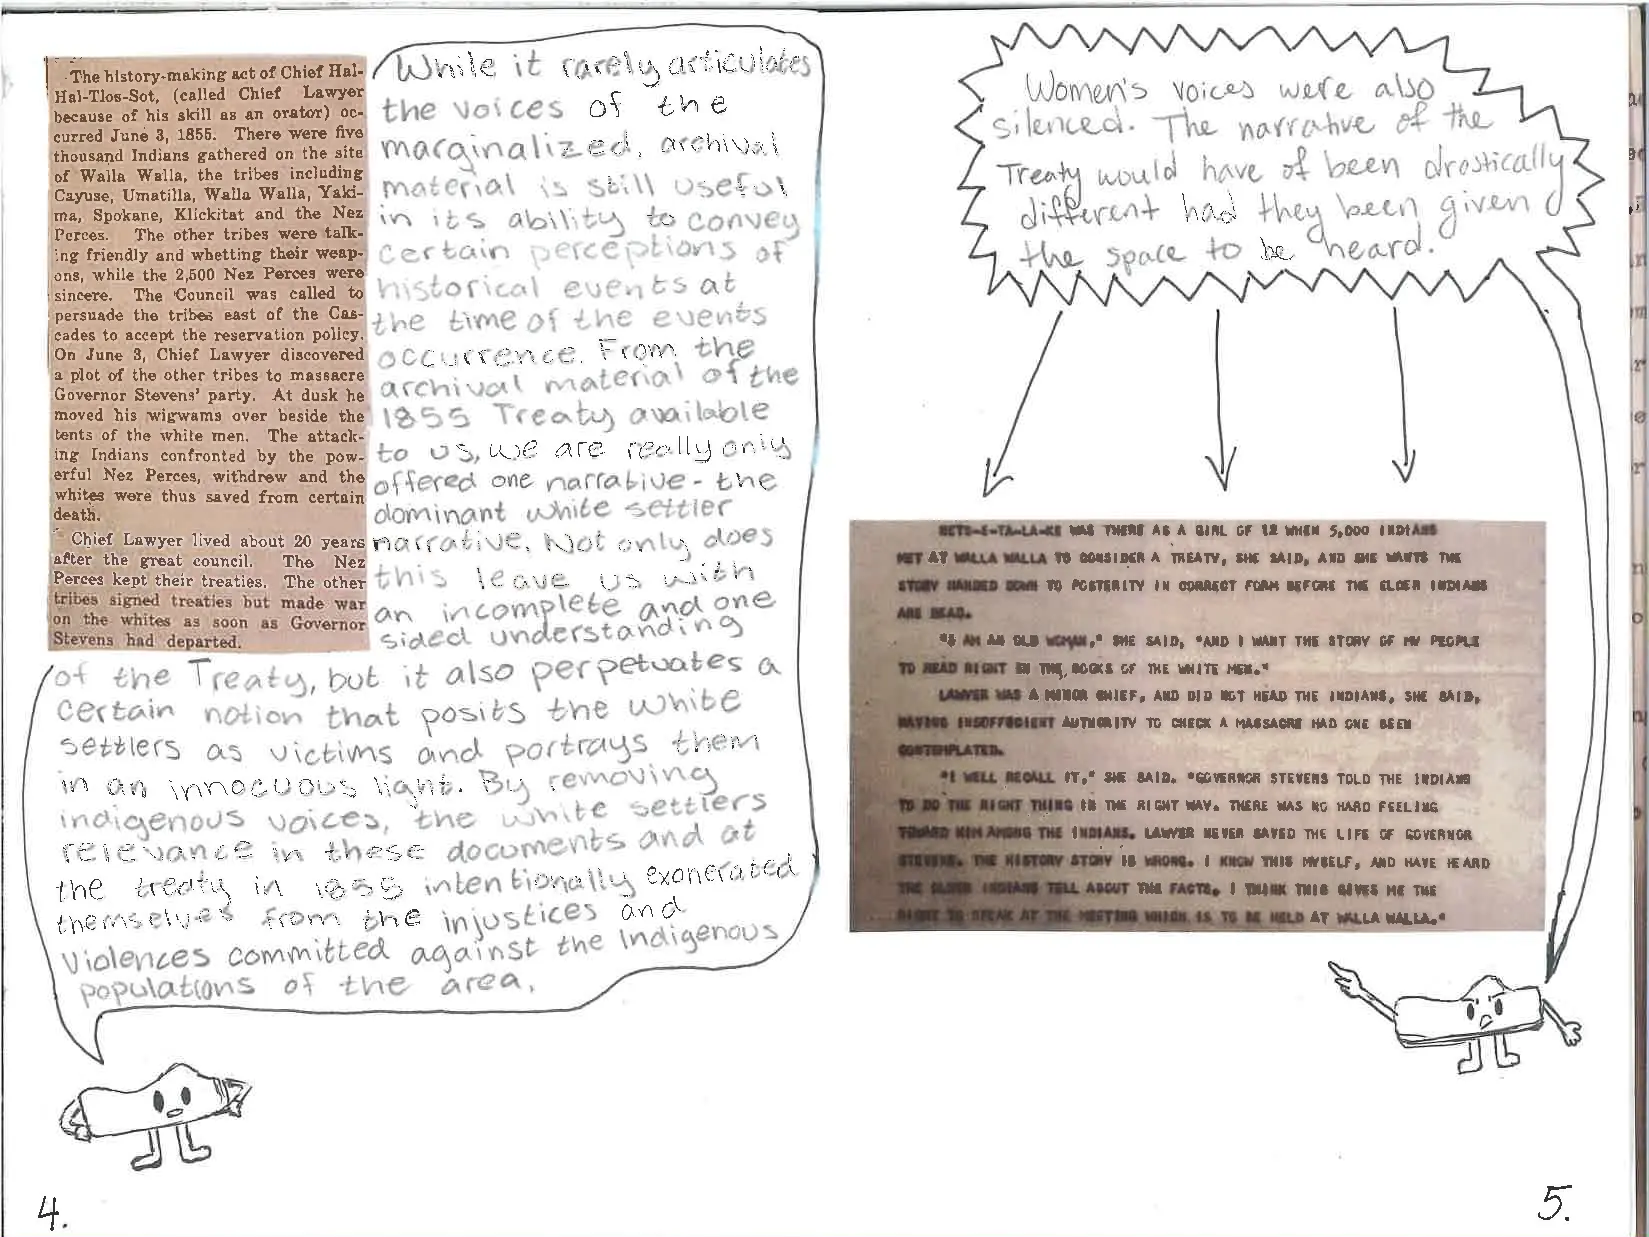 The history-making act of Chief Hal-
Hal-Tlos-Sot, (called Chief Lawyer
because of his skill as an orator) oc-
curred June 3, 1855. There were five
thousand Indians gathered on the site
of Walla Walla, the tribes including
Cayuse, Umatilla, Walla Walla, Yaki-
ma, Spokane, Klickitat and the Nez
Perces. The other tribes were talk-
ing friendly and whetting their weap-
ons, while the 2,500 Nez Perces were
sincere. The Council was called to
persuade the tribes east of the Cas-
cades to accept the reservation policy.
On June 3, Chief Lawyer discovered
a plot of the other tribes to massacre
Governor Stevens' party. At dusk he
moved his wigwams over beside the
tents of the white men. The attack-
ing Indians confronted by the pow-
erful Nez Perces, withdrew and the
whites were thus saved from certain
death.
Chief Lawyer lived about 20 years
after the great council. The Nez
Perces kept their treaties. The other
tribes signed treaties but made war
on the whites as soon as Governor
Stevens had departed.
While it rarely articulates
the voices of the
marginalized, archival
material is still useful
in its ability to convey
certain perceptions of
historical events at
the time of the events
occurrence. From the
archival material of the
1855 Treaty available
to us, we are really only
offered one narrative - the
dominant white settler
narrative. Not only does
this leave us with
an incomplete and one
sided understanding
of the Treaty, but it also perpetuates a
certain notion that posits the white
settlers as victims and portrays them
in an innocuous light. By removing
indigenous voices, the white settlers
relevance in these documents and at
the treaty in 1855 intentionally exonerated
themselves from the injustices and
violences committed against the Indigenous
populations of the area.
4.
Women's voices were also
silenced. The narrative of the
Treaty would have of been drastically
different had they been given
the space to be heard.
WAS THERE AS A GIRL OF 12 WHEN 5,000 INDIANS
MET AT WALLA WALLA TO CONSIDER A TREATY, SHE SAID, AND SHE WANTS THE
STORY HANDED DOWN TO POSTERITY IN CORRECT FORM BEFORE THE ELDER INDIANS
ARE DEAD.
"I AM AN OLD WOMAN," SHE SAID, "AND I WANT THE STORY OF MY PEOPLE
TO READ RIGHT IN THE BOOKS OF THE WHITE MEN."
LAWYER WAS A MINOR CHIEF, AND DID NOT HEAD THE INDIANS, SHE SAID,
HAVING INSUFFICIENT AUTHORITY TO CHECK A MASSACRE HAD ONE BEEN
CONTEMPLATED.
"I WELL RECALL IT," SHE SAID. "GOVERNOR STEVENS TOLD THE INDIANS
TO DO THE RIGHT THING IN THE RIGHT WAY. THERE WAS NO HARD FEELING
TOWARD HIM AMONG THE INDIANS. LAWYER NEVER SAVED THE LIFE OF GOVERNOR
STEVENS. THE HISTORY STORY IS WRONG. I KNOW THIS MYSELF, AND HAVE HEARD
THE OLDER INDIANS TELL ABOUT THE FACTS. I THINK THIS GIVES ME THE
RIGHT TO SPEAK AT THE MEETING WHICH IS TO BE HELD AT WALLA WALLA."
5.